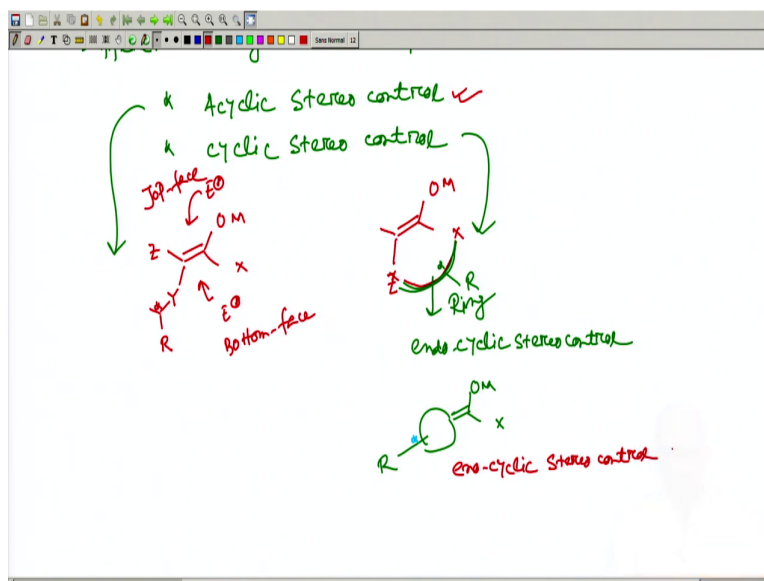 Sans Normal 12
* Acyclic Stereo control ✓
* cyclic Stereo control
Top-face E⊕
OM
Z
X
Y
*
R
E⊕
Bottom-face
OM
X
Z
*
R
Ring
endo-cyclic Stereo control
OM
X
*
R
exo-cyclic Stereo control